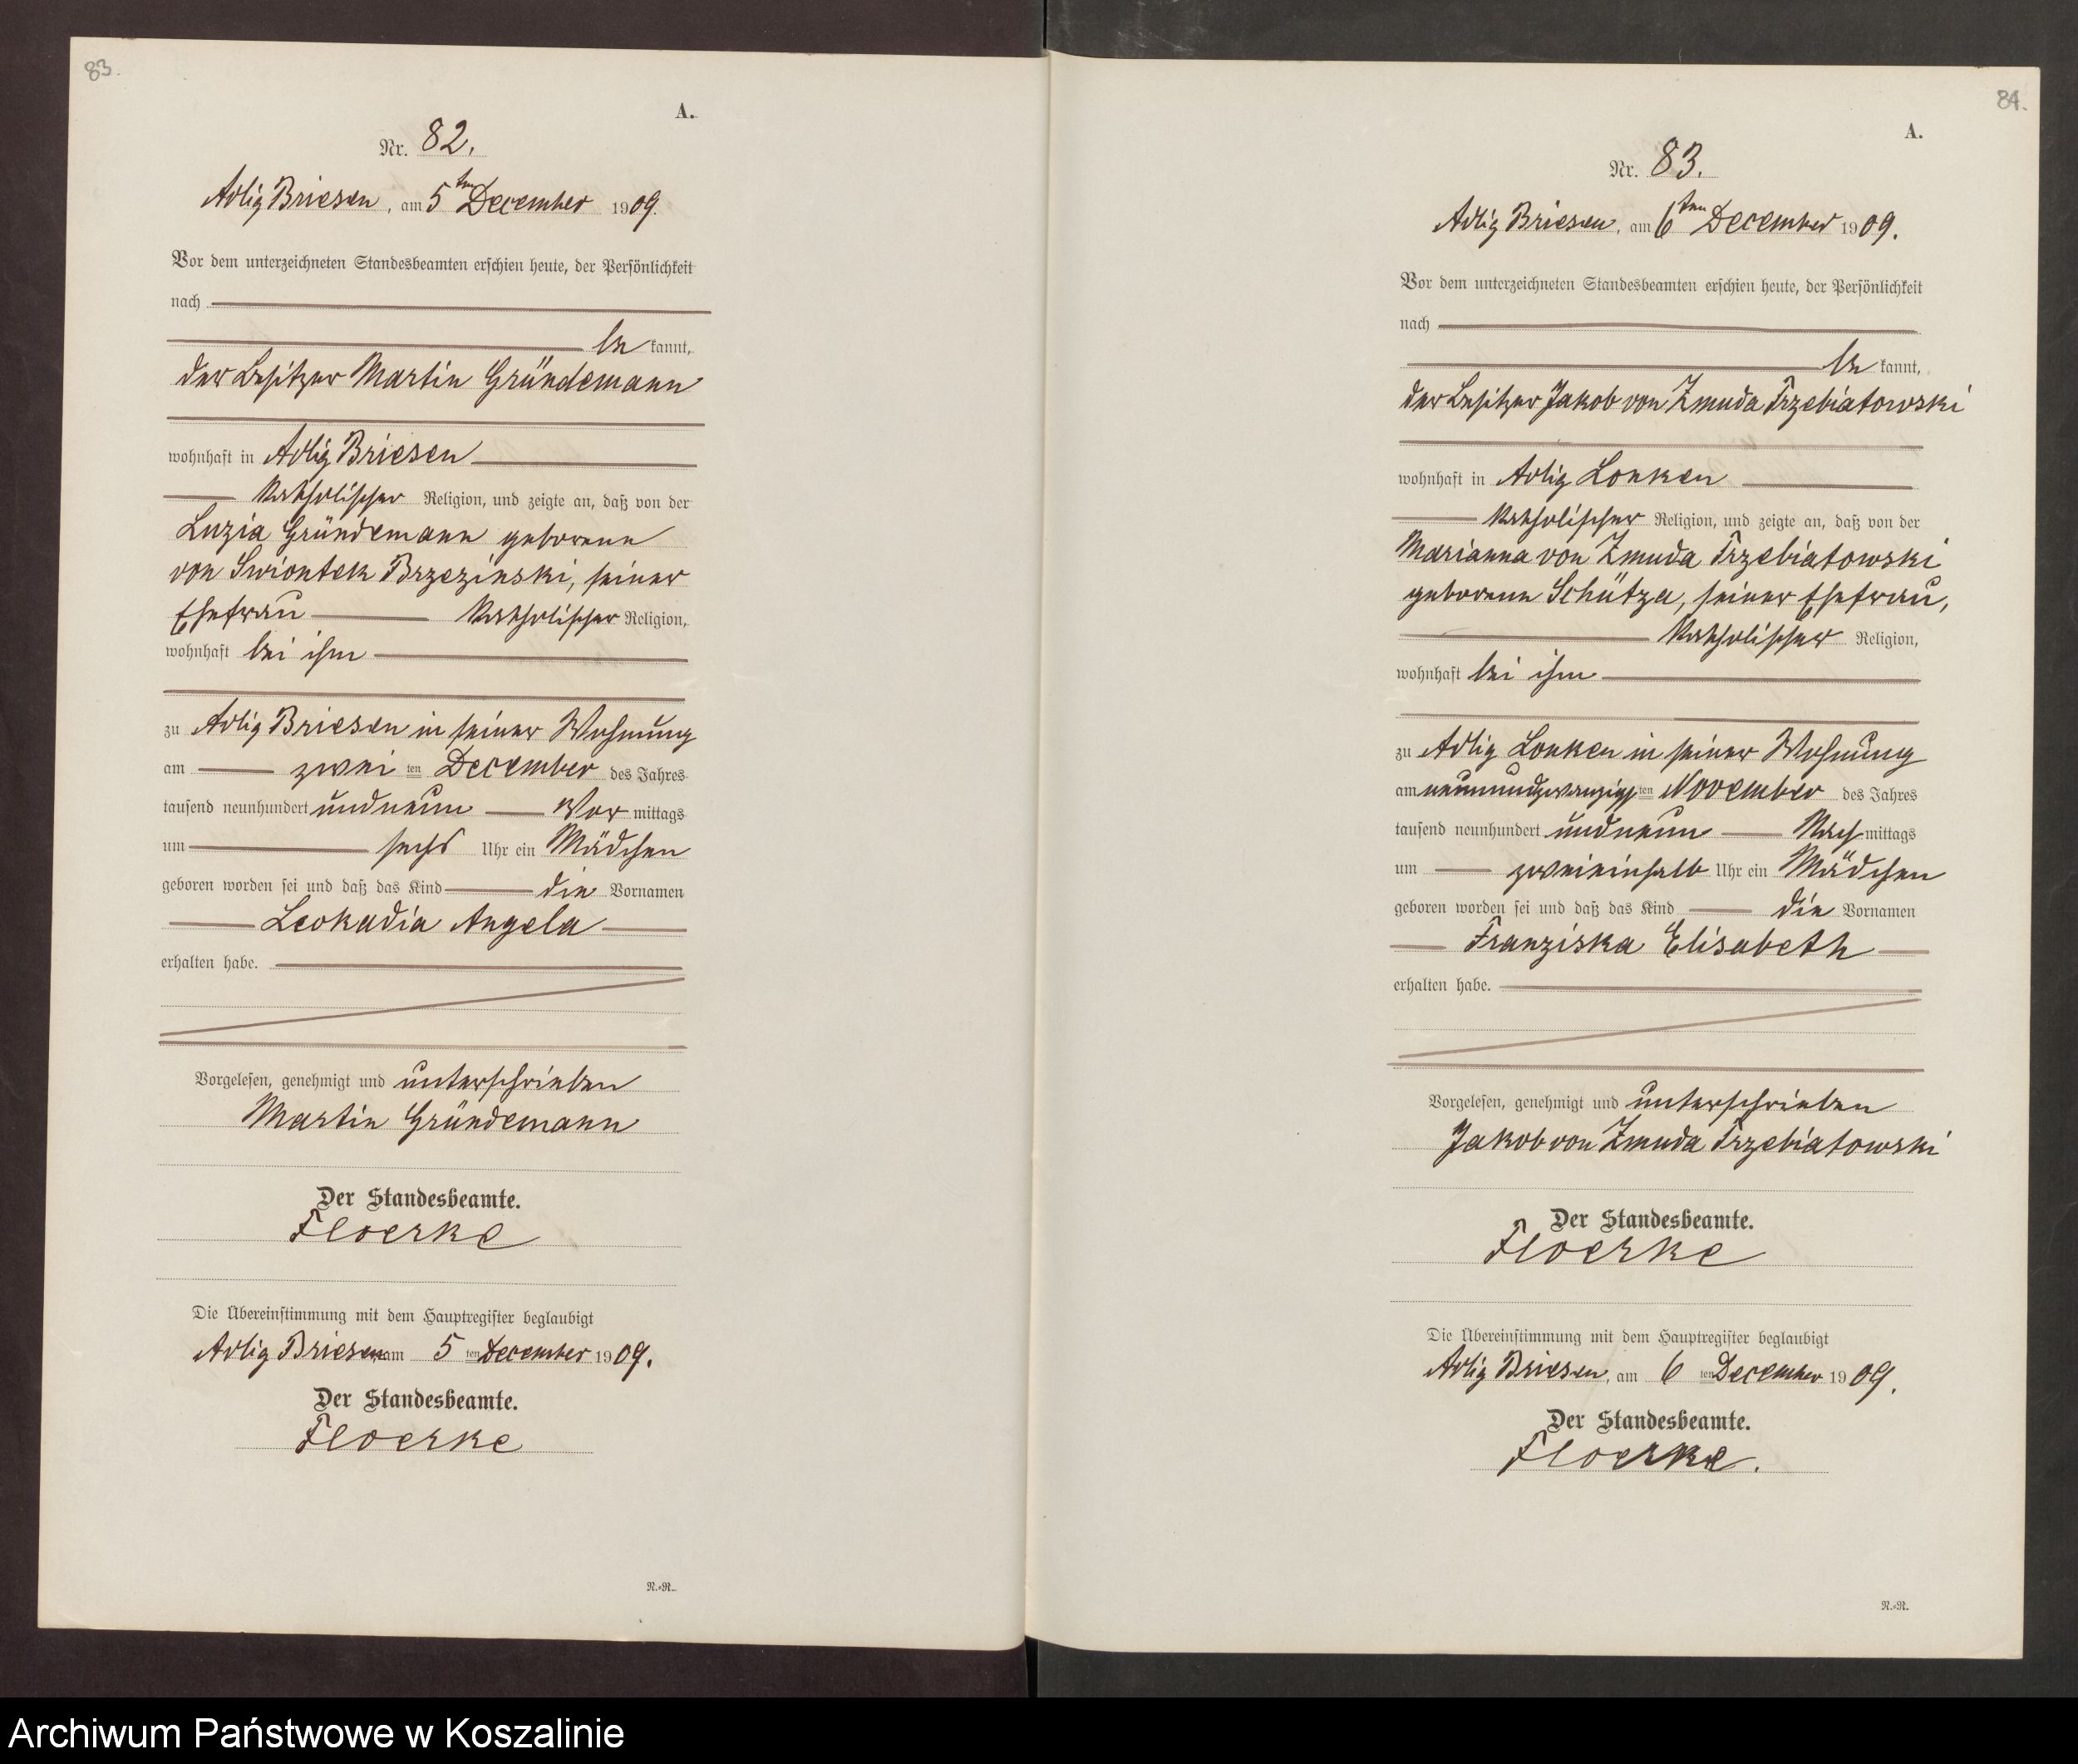 83.
A.
Nr. 82.
Adlig Briesen, am 5ten December 1909.
Vor dem unterzeichneten Standesbeamten erschien heute, der Persönlichkeit
nach
be kannt,
der Besitzer Martin Gründemann
wohnhaft in Adlig Briesen
katholischer Religion, und zeigte an, daß von der
Luzia Gründemann geborene
von Swiontek Brzezinski, seiner
Ehefrau katholischer Religion,
wohnhaft bei ihm
zu Adlig Briesen in seiner Wohnung
am zwei ten December des Jahres
tausend neunhundert und neun Vor mittags
um sechs Uhr ein Mädchen
geboren worden sei und daß das Kind die Vornamen
Leokadia Angela
erhalten habe.
Vorgelesen, genehmigt und unterschrieben
Martin Gründemann
Der Standesbeamte.
Floerke
Die Übereinstimmung mit dem Hauptregister beglaubigt
Adlig Briesen, am 5 ten December 1909.
Der Standesbeamte.
Floerke
N.=N.
84.
A.
Nr. 83.
Adlig Briesen, am 6ten December 1909.
Vor dem unterzeichneten Standesbeamten erschien heute, der Persönlichkeit
nach
be kannt,
der Besitzer Jakob von Zmuda Trzebiatowski
wohnhaft in Adlig Lonken
katholischer Religion, und zeigte an, daß von der
Marianna von Zmuda Trzebiatowski
geborene Schütza, seiner Ehefrau,
katholischer Religion,
wohnhaft bei ihm
zu Adlig Lonken in seiner Wohnung
am neunundzwanzigsten November des Jahres
tausend neunhundert und neun Nach mittags
um zweieinhalb Uhr ein Mädchen
geboren worden sei und daß das Kind die Vornamen
Franziska Elisabeth
erhalten habe.
Vorgelesen, genehmigt und unterschrieben
Jakob von Zmuda Trzebiatowski
Der Standesbeamte.
Floerke
Die Übereinstimmung mit dem Hauptregister beglaubigt
Adlig Briesen, am 6 ten December 1909.
Der Standesbeamte.
Floerke.
N.=N.
Archiwum Państwowe w Koszalinie